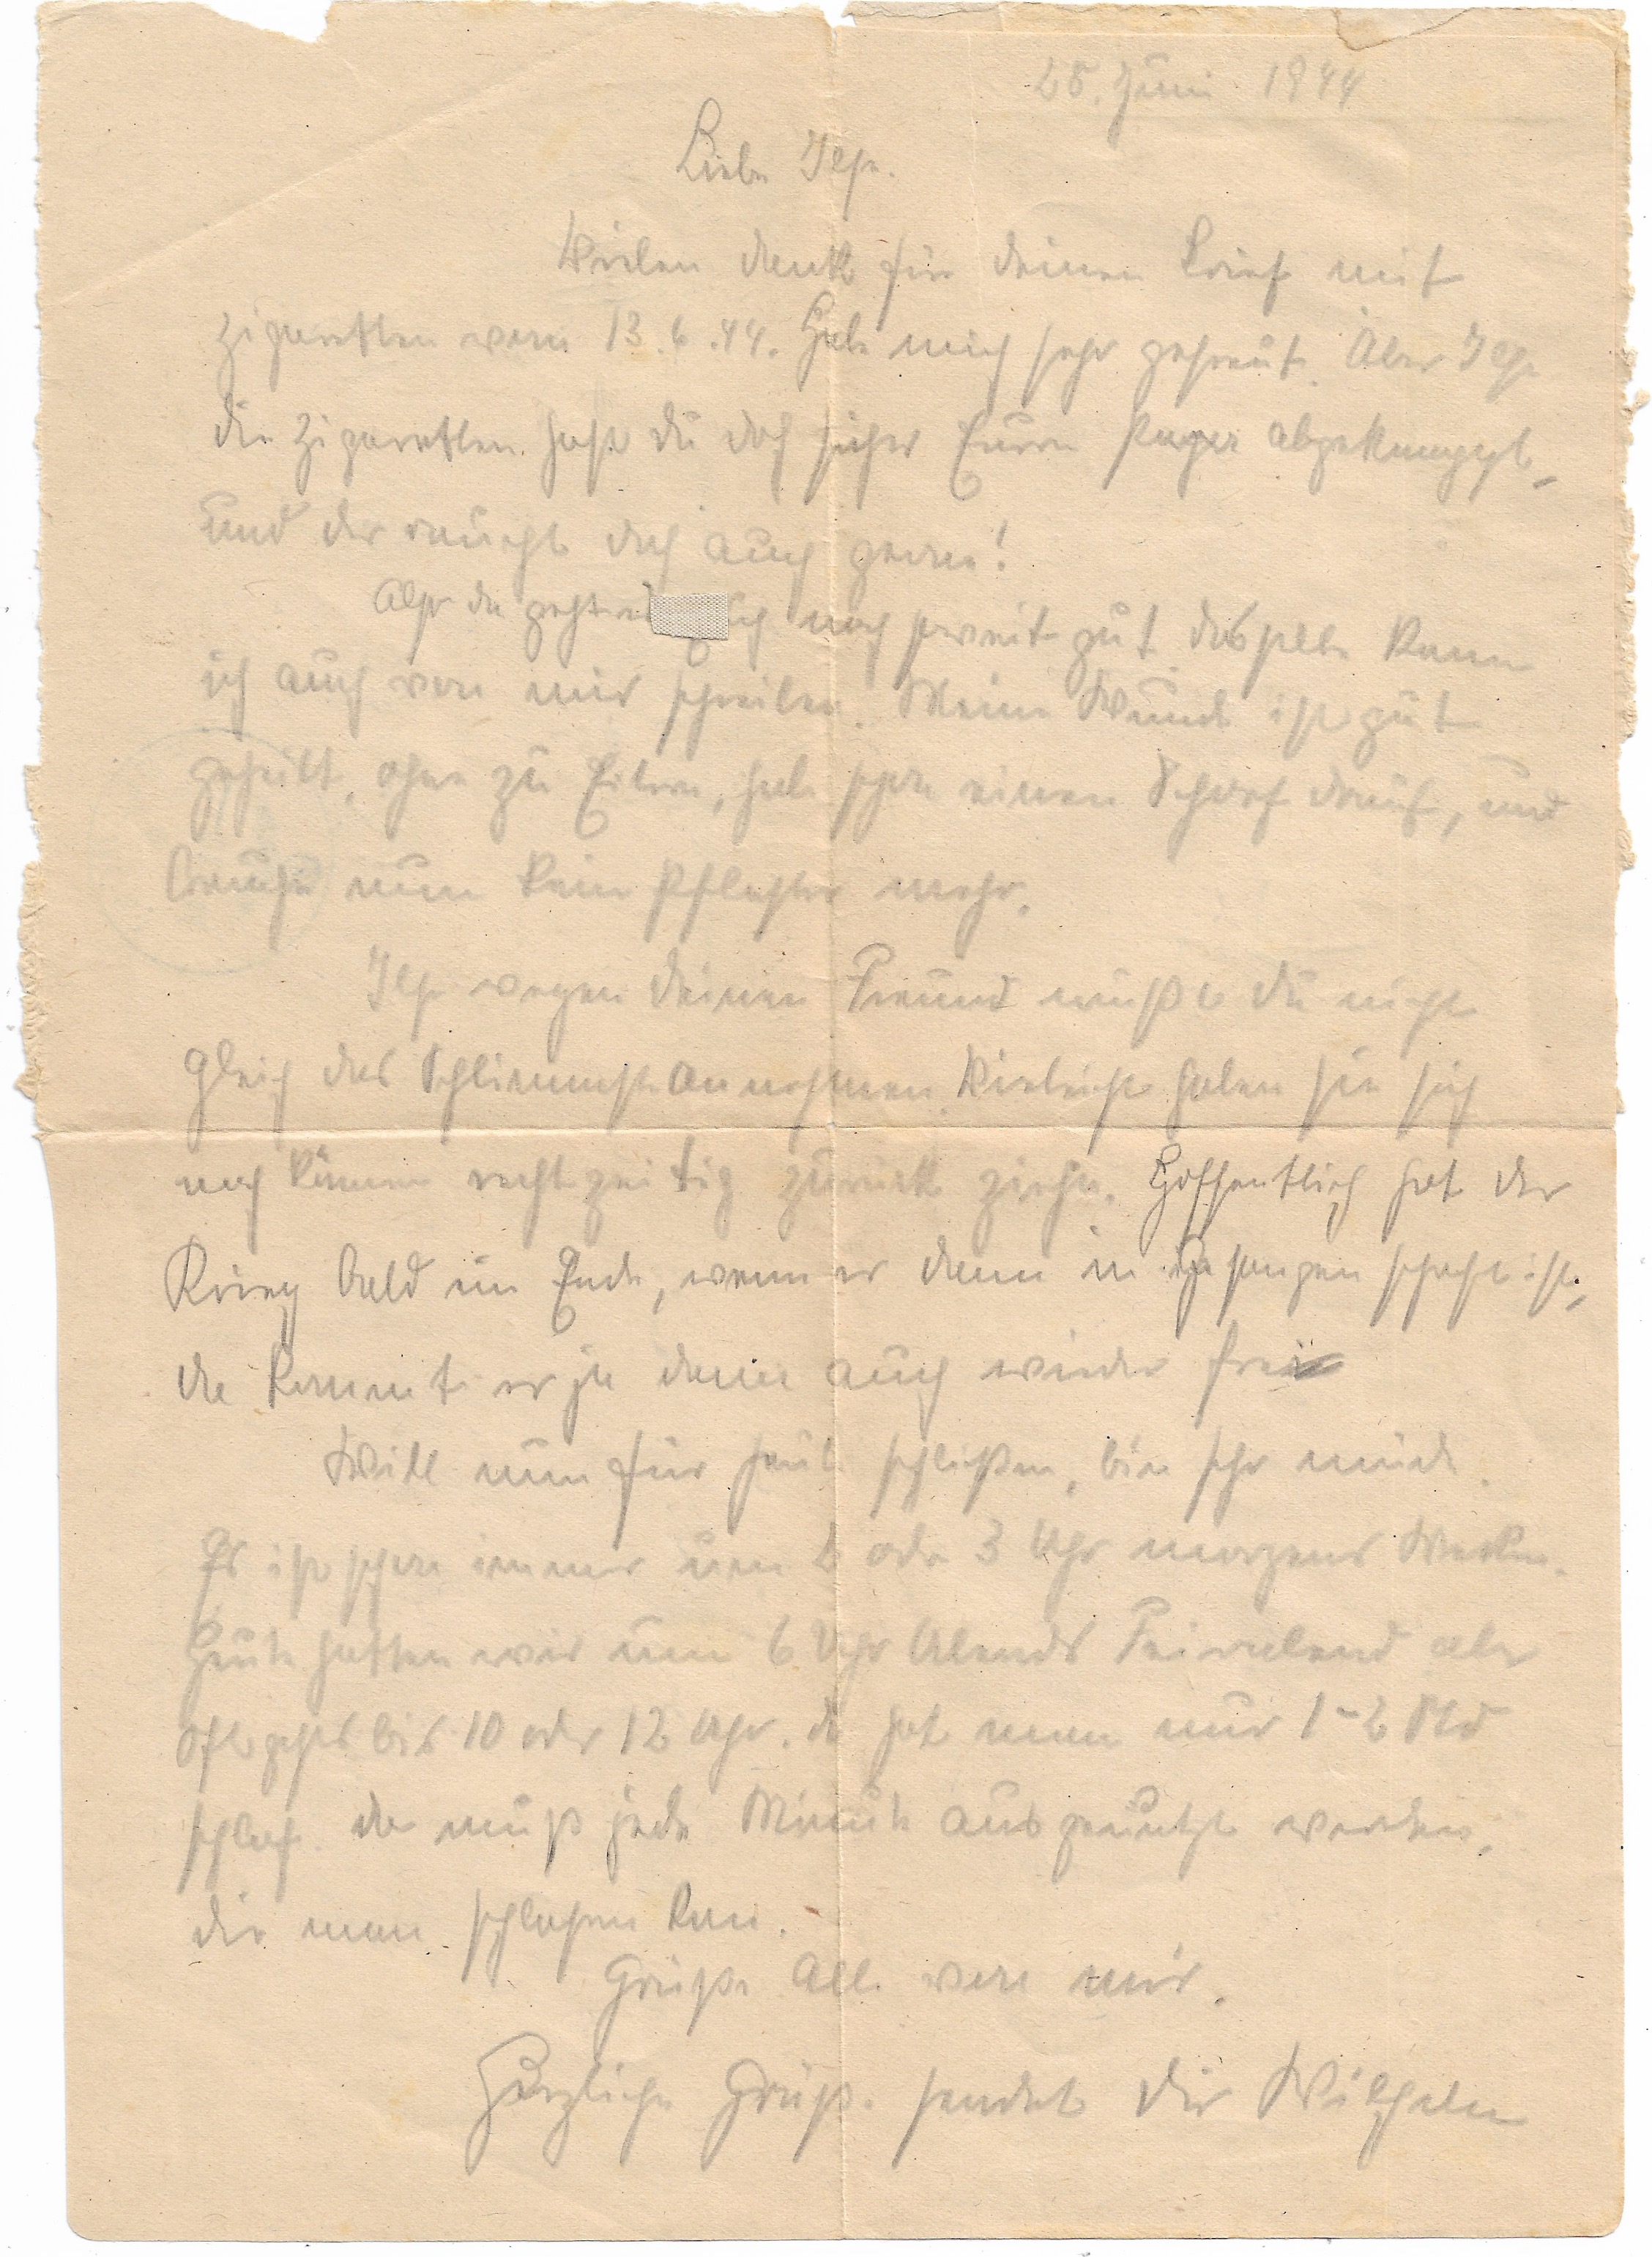 25. Juni 1944
Liebe Ilse.
Vielen Dank für deinen Brief mit
Zigaretten vom 13.6.44. Habe mich sehr gefreut. Aber Ilse
die Zigaretten hast du doch sicher Euren abgeknappst,
und der raucht doch auch gerne!
Also da geht es auch noch soweit gut dasselbe kann
ich auch von mir schreiben. Meine Wunde ist gut
geheilt, ohne zu Eitern, habe schon einen Schorf drauf, und
brauche nun kein Pflaster mehr.
Ilse wegen deinen Freund mußt du nicht
gleich das Schlimmste annehmen. Vieleicht haben sie sich
noch können rechtzeitig zurück ziehn. Hoffentlich hat der
Krieg bald ein Ende, wenn er dann in Gefangenschaft ist,
da kommt er ja dann auch wieder frei
Will nun für heute schließen, bin sehr müde.
Es ist schon immer um 2 oder 3 Uhr morgens Wecken.
Heute hatten wir um 6 Uhr Abends Feierabend aber
oft gehts bis 10 oder 12 Uhr. da hat man nur 1-2 Std
schlaf. da muß jede Minute ausgenutzt werden,
die man schlafen kan.
Grüße alle von mir.
Herzliche Grüße sendet dir Wilhelm